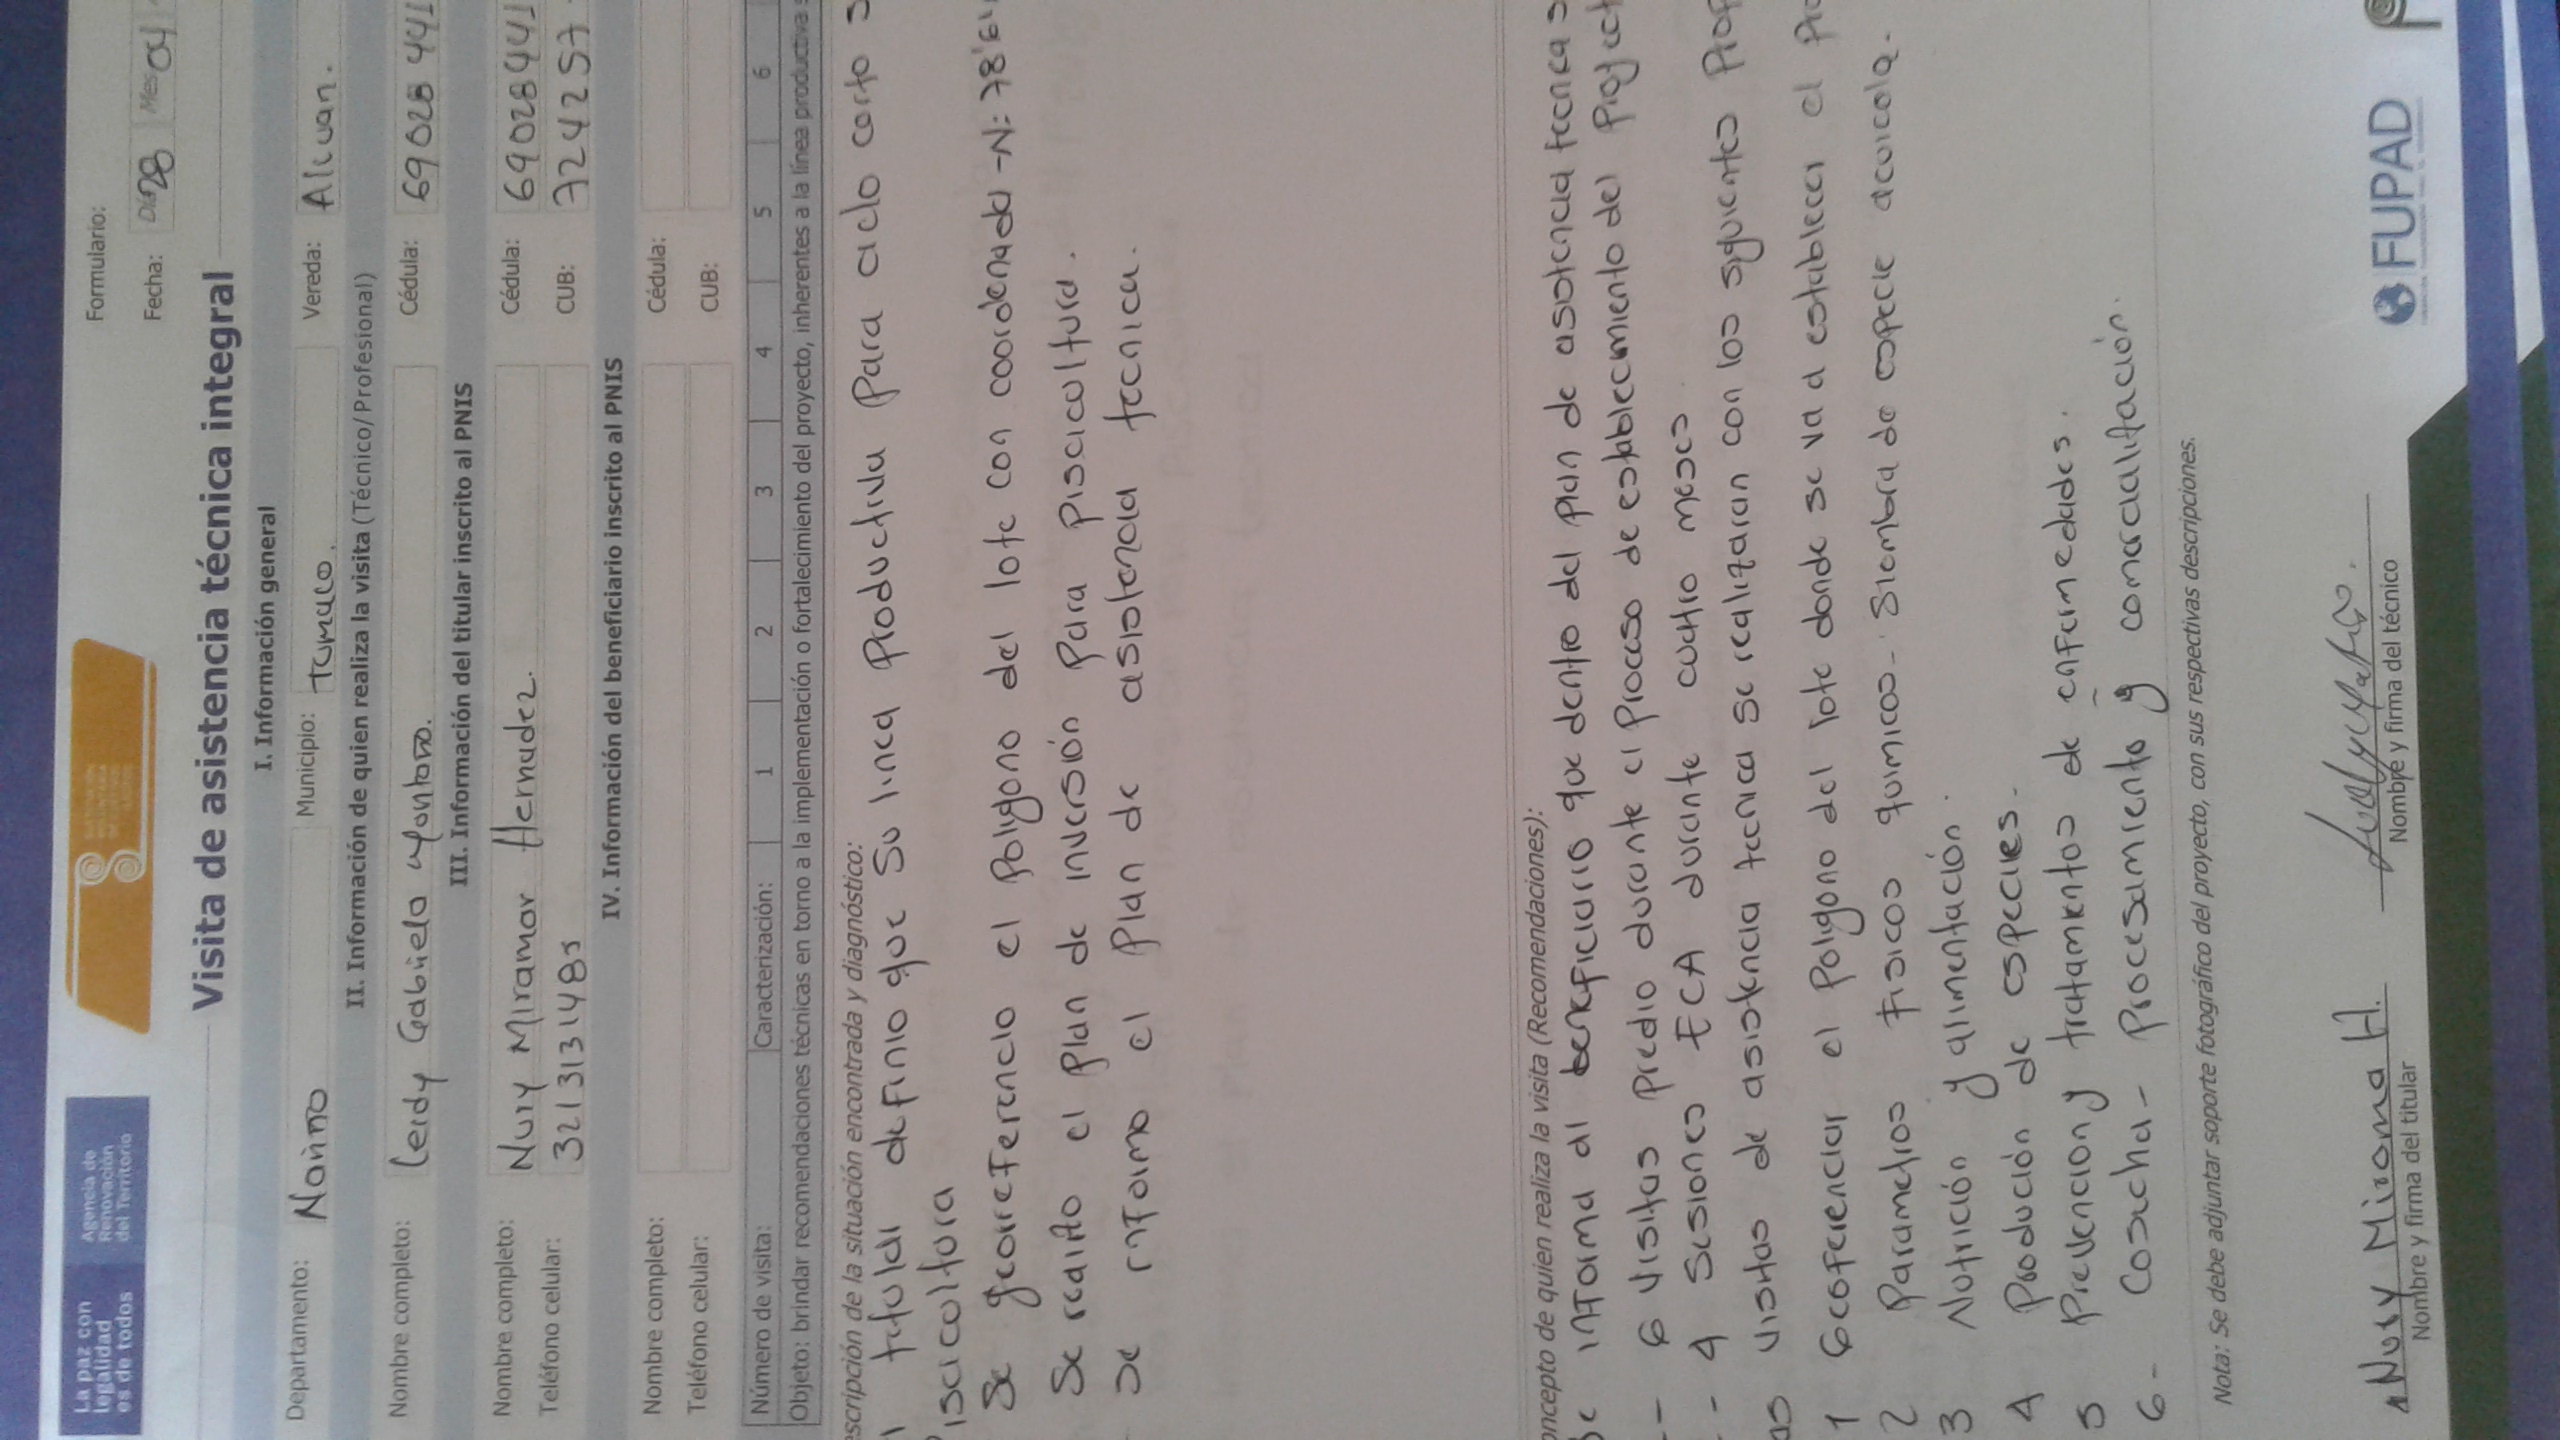 La paz con legalidad es de todos
Agencia de Renovación del Territorio
Formulario:
Fecha: Día 28 Mes 04
Visita de asistencia técnica integral
I. Información general
Departamento: Nariño Municipio: Tumaco. Vereda:
II. Información de quien realiza la visita (Técnico/Profesional)
Nombre completo: Leidy Gabriela Cédula: 69028 441
III. Información del titular inscrito al PNIS
Nombre completo: Nury Miramar Hernudez. Cédula: 69028441
Teléfono celular: 3213131485 CUB: 7242257
IV. Información del beneficiario inscrito al PNIS
Nombre completo: Cédula:
Teléfono celular: CUB:
Número de visita: Caracterización: 1 2 3 4 5 6
Objeto: brindar recomendaciones técnicas en torno a la implementación o fortalecimiento del proyecto, inherentes a la línea productiva
escripción de la situación encontrada y diagnóstico:
titular definio que su linea productiva para ciclo corto
iscicultura
Se georreferencio el poligono del lote con coordenadas -N: 78°
Se realito el plan de inversión para piscicultura.
se informo el plan de asistencia tecnica.
oncepto de quien realiza la visita (Recomendaciones):
se informa al beneficiario que dentro del plan de asistencia tecnica
- 6 visitas predio durante el proceso de establecimiento del
- 4 sesiones ECA durante cuatro meses.
as visitas de asistencia tecnica se realizaran con los siguientes
1 Georeferenciar el poligono del lote donde se va a establecer el
2 Parametros fisicos quimicos - Siembra de especie acuicola.
3 Nutrición y alimentación.
4 Produción de especies.
5 Prevencion y tratamientos de enfermedades.
6- Cosecha - Procesamiento y comercialitación.
Nota: Se debe adjuntar soporte fotográfico del proyecto, con sus respectivas descripciones.
Nury Mirama H.
Nombre y firma del titular Nombre y firma del técnico
FUPAD